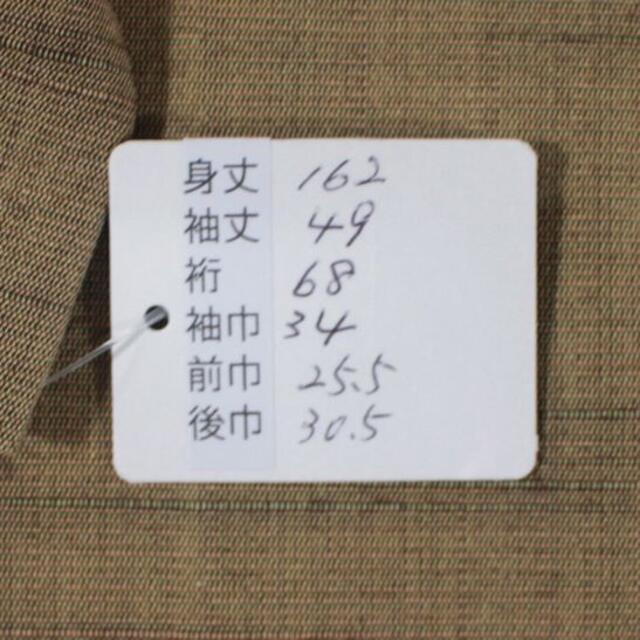 身丈 162
袖丈 49
裄 68
袖巾 34
前巾 25.5
後巾 30.5